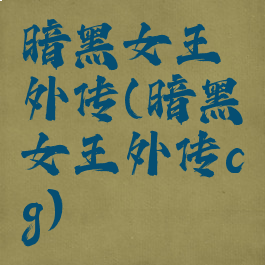 暗黑女王
外传(暗黑
女王外传c
g)